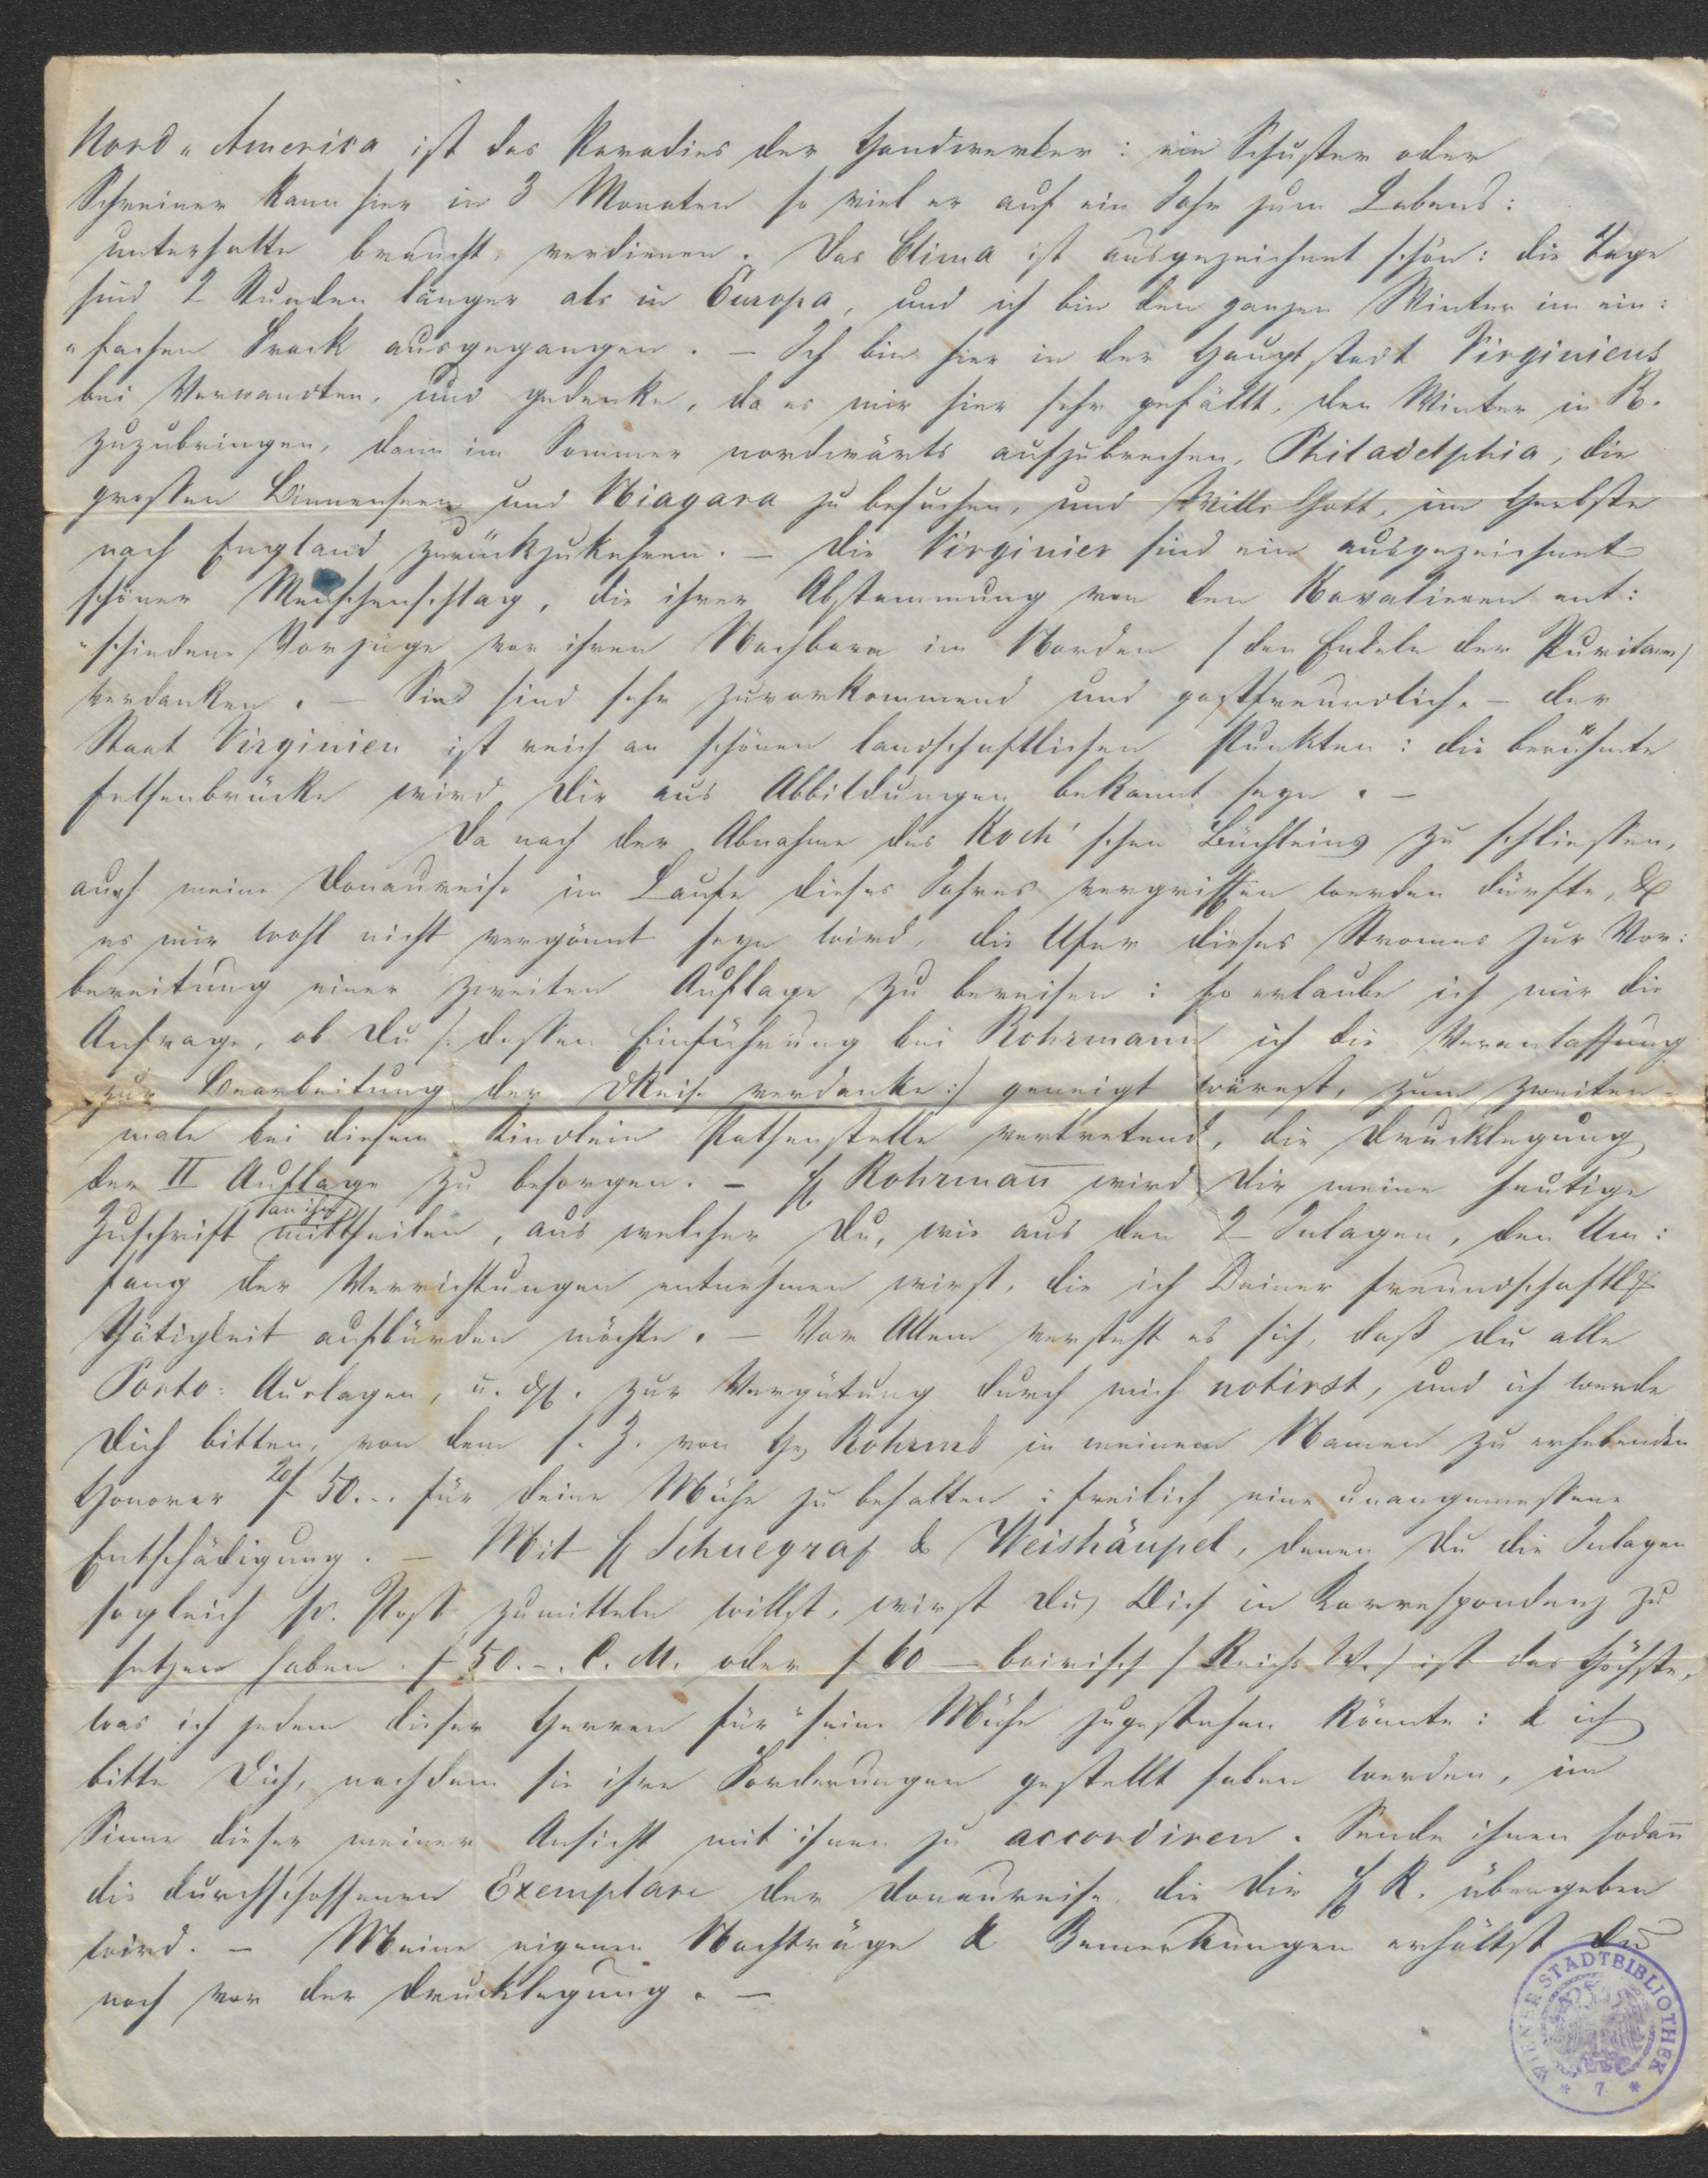 Nord „ America ist das Paradies der Handwerker : ein Schuster oder
Schreiner kann hier in 3 Monaten so viel er auf ein Jahr zum Lebens:
unterhalte braucht, verdienen. Das Clima ist ausgezeichnet schön: die Tage
sind 2 Stunden länger als in Europa, und ich bin den ganzen Winter im ein:
„fachen Frack ausgegangen. – Ich bin hier in der Hauptstadt Virginiens
bei Verwandten, und gedenke, da es mir hier sehr gefällt, den Winter in R.
zuzubringen, dann im Sommer nordwärts aufzubrechen, Philadelphia, die
grossen Binnenseen und Niagara zu besuchen, und Wills Gott, im Herbste
nach England zurückzukehren. – Die Virginier sind ein ausgezeichnet
schöner Menschenschlag, die ihrer Abstammung von den Kavalieren ent:
„schiedene Vorzüge vor ihren Nachbarn im Norden /den Enkeln der Puritaner/
verdanken. – Sie sind sehr zuvorkommend und gastfreundlich. – Der
Staat Virginien ist reich an schönen landschaftlichen Punkten : die berühmte
Felsenbrücke wird Dir aus Abbildungen bekannt seyn. –
Da nach der Abnahme des Koch'schen Büchleins zu schliessen,
auch meine Donaureise im Laufe dieses Jahres vergriffen werden dürfte, &
es mir wohl nicht vergönnt seyn wird, die Ufer dieses Stromes zur Vor:
bereitung einer zweiten Auflage zu bereisen : so erlaube ich mir die
Anfrage, ob Du /: dessen Einführung bei Rohrmann ich die Veranlassung
zur Bearbeitung der Reise verdanke :/ geneigt wärest, zum zweiten-
male bei diesem Kindlein Pathenstelle vertretend, die Drucklegung
der II Auflage zu besorgen. – H Rohrman̅ wird Dir meine heutige
Zuschrift an ihn mittheilen, aus welcher Du, wie aus den 2 Inlagen, den Um:
fang der Verrichtungen entnehmen wirst, die ich Deiner freundschaftl
Thätigkeit aufbürden möchte. – Vor Allem versteht es sich, daß Du alle
Porto: Auslagen, u. dgl. zur Vergütung durch mich notirst, und ich werde
Dich bitten, von dem s. Z. von H Rohrmd in meinem Namen zu erhebenden
Honorar f 50... für deine Mühe zu behalten : freilich eine unangemessene
Entschädigung. – Mit H Schuegraf & Weishäupel, denen Du die Inlagen
sogleich pr. Post zumitteln willst, wirst Du Dich in Korrespondenz zu
setzen haben. f 50.–. C. M. oder f 60 – bairisch / Reichs W. / ist das Höchste,
was ich jedem dieser Herren für seine Mühe zugestehen könnte : & ich
bitte Dich, nachdem sie ihre Forderungen gestellt haben werden, im
Sinne dieser meiner Ansicht mit ihnen zu accordiren. Sende ihnen sodan̅
die durchschossenen Exemplare der Donaureise, die Dir H R. übergeben
wird. – Meine eigenen Nachträge & Bemerkungen erhältst Du
noch vor der Drucklegung. –
WIENER STADTBIBLIOTHEK
* 7 *